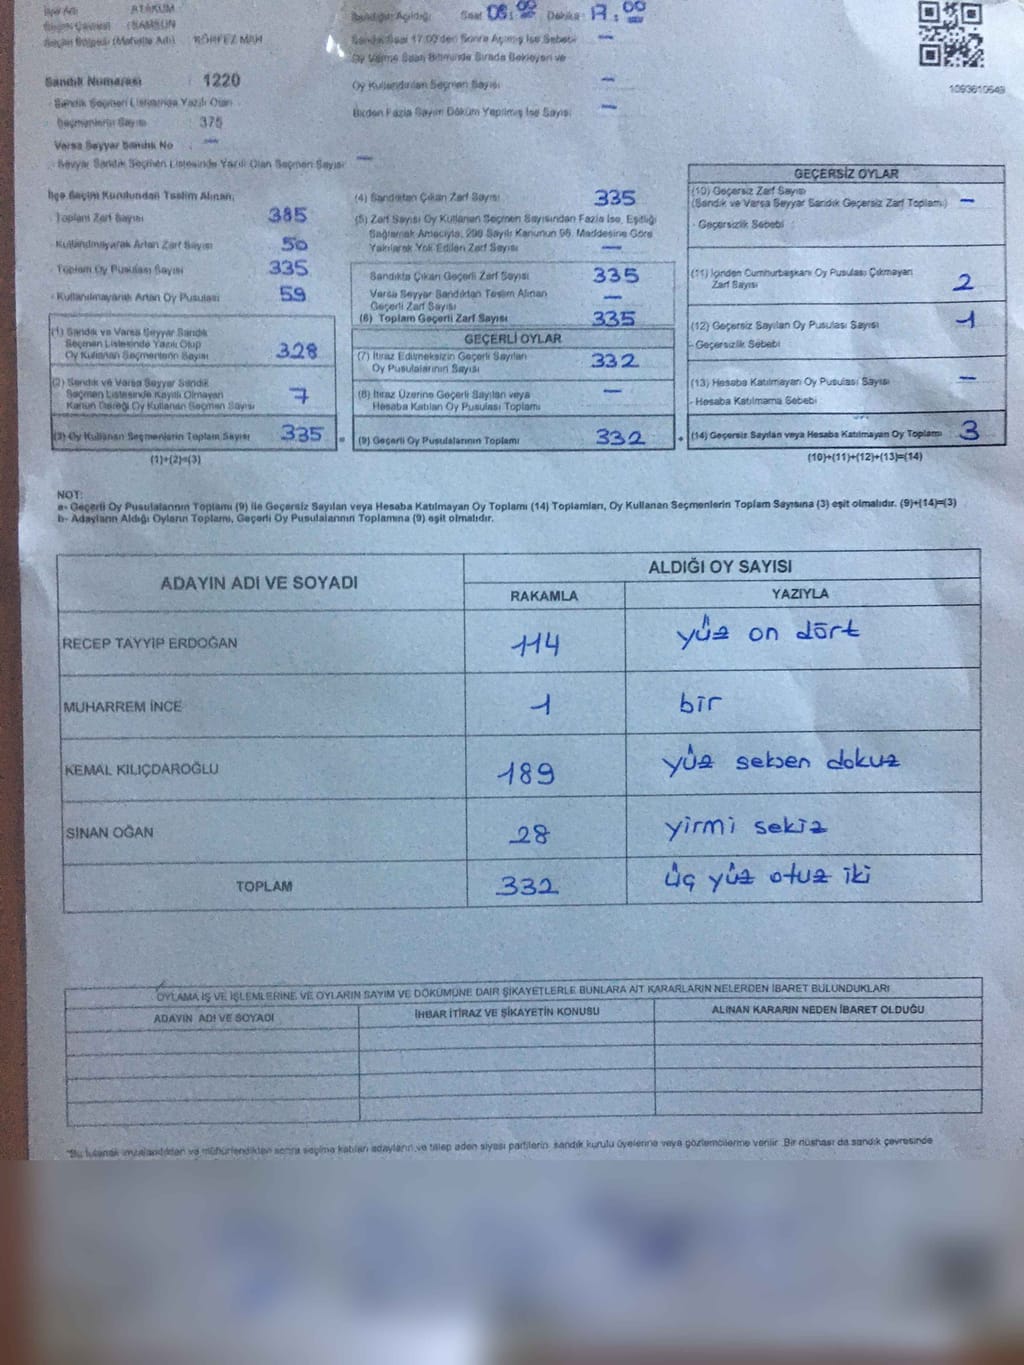 İlçe Adı : ATAKUM
Seçim Çevresi : SAMSUN
Seçim Bölgesi (Mahalle Adı) : KÖRFEZ MAH
Sandık Numarası : 1220
Sandık Seçmen Listesinde Yazılı Olan
Seçmenlerin Sayısı : 375
Varsa Seyyar Sandık No —
Seyyar Sandık Seçmen Listesinde Yazılı Olan Seçmen Sayısı —
Saat 08:00 Dakika: 17:00
Sandık Saat 17:00'den Sonra Açılmış İse Sebebi —
Oy Verme Saati Bitiminde Sırada Bekleyen ve
Oy Kullandırılan Seçmen Sayısı —
Birden Fazla Sayım Döküm Yapılmış İse Sayısı —
1093610649
İlçe Seçim Kurulundan Teslim Alınan;
Toplam Zarf Sayısı 385
- Kullanılmayarak Artan Zarf Sayısı 50
- Toplam Oy Pusulası Sayısı 335
- Kullanılmayarak Artan Oy Pusulası 59
(1) Sandık ve Varsa Seyyar Sandık
Seçmen Listesinde Yazılı Olup
Oy Kullanan Seçmenlerin Sayısı 328
(2) Sandık ve Varsa Seyyar Sandık
Seçmen Listesinde Kayıtlı Olmayan
Kanun Gereği Oy Kullanan Seçmen Sayısı 7
(3) Oy Kullanan Seçmenlerin Toplam Sayısı 335 =
(1)+(2)=(3)
(4) Sandıktan Çıkan Zarf Sayısı 335
(5) Zarf Sayısı Oy Kullanan Seçmen Sayısından Fazla İse, Eşitliği
Sağlamak Amacıyla, 298 Sayılı Kanunun 98. Maddesine Göre
Yakılarak Yok Edilen Zarf Sayısı —
Sandıkta Çıkan Geçerli Zarf Sayısı 335
Varsa Seyyar Sandıktan Teslim Alınan
Geçerli Zarf Sayısı —
(6) Toplam Geçerli Zarf Sayısı 335
GEÇERLİ OYLAR
(7) İtiraz Edilmeksizin Geçerli Sayılan
Oy Pusulalarının Sayısı 332
(8) İtiraz Üzerine Geçerli Sayılan veya
Hesaba Katılan Oy Pusulası Toplamı —
(9) Geçerli Oy Pusulalarının Toplamı 332 +
GEÇERSİZ OYLAR
(10) Geçersiz Zarf Sayısı
(Sandık ve Varsa Seyyar Sandık Geçersiz Zarf Toplamı) —
- Geçersizlik Sebebi
(11) İçinden Cumhurbaşkanı Oy Pusulası Çıkmayan
Zarf Sayısı 2
(12) Geçersiz Sayılan Oy Pusulası Sayısı 1
- Geçersizlik Sebebi
(13) Hesaba Katılmayan Oy Pusulası Sayısı —
- Hesaba Katılmama Sebebi
(14) Geçersiz Sayılan veya Hesaba Katılmayan Oy Toplamı 3
(10)+(11)+(12)+(13)=(14)
NOT:
a- Geçerli Oy Pusulalarının Toplamı (9) ile Geçersiz Sayılan veya Hesaba Katılmayan Oy Toplamı (14) Toplamları, Oy Kullanan Seçmenlerin Toplam Sayısına (3) eşit olmalıdır. (9)+(14)=(3)
b- Adayların Aldığı Oyların Toplamı, Geçerli Oy Pusulalarının Toplamına (9) eşit olmalıdır.
ADAYIN ADI VE SOYADI
ALDIĞI OY SAYISI
RAKAMLA YAZIYLA
RECEP TAYYİP ERDOĞAN 114 yüz on dört
MUHARREM İNCE 1 bir
KEMAL KILIÇDAROĞLU 189 yüz seksen dokuz
SİNAN OĞAN 28 yirmi sekiz
TOPLAM 332 üç yüz otuz iki
OYLAMA İŞ VE İŞLEMLERİNE VE OYLARIN SAYIM VE DÖKÜMÜNE DAİR ŞİKAYETLERLE BUNLARA AİT KARARLARIN NELERDEN İBARET BULUNDUKLARI
ADAYIN ADI VE SOYADI İHBAR İTİRAZ VE ŞİKAYETİN KONUSU ALINAN KARARIN NEDEN İBARET OLDUĞU
*Bu tutanak imzalandıktan ve mühürlendikten sonra seçime katılan adayların ve talep eden siyasi partilerin sandık kurulu üyelerine veya gözlemcilerine verilir. Bir nüshası da sandık çevresinde